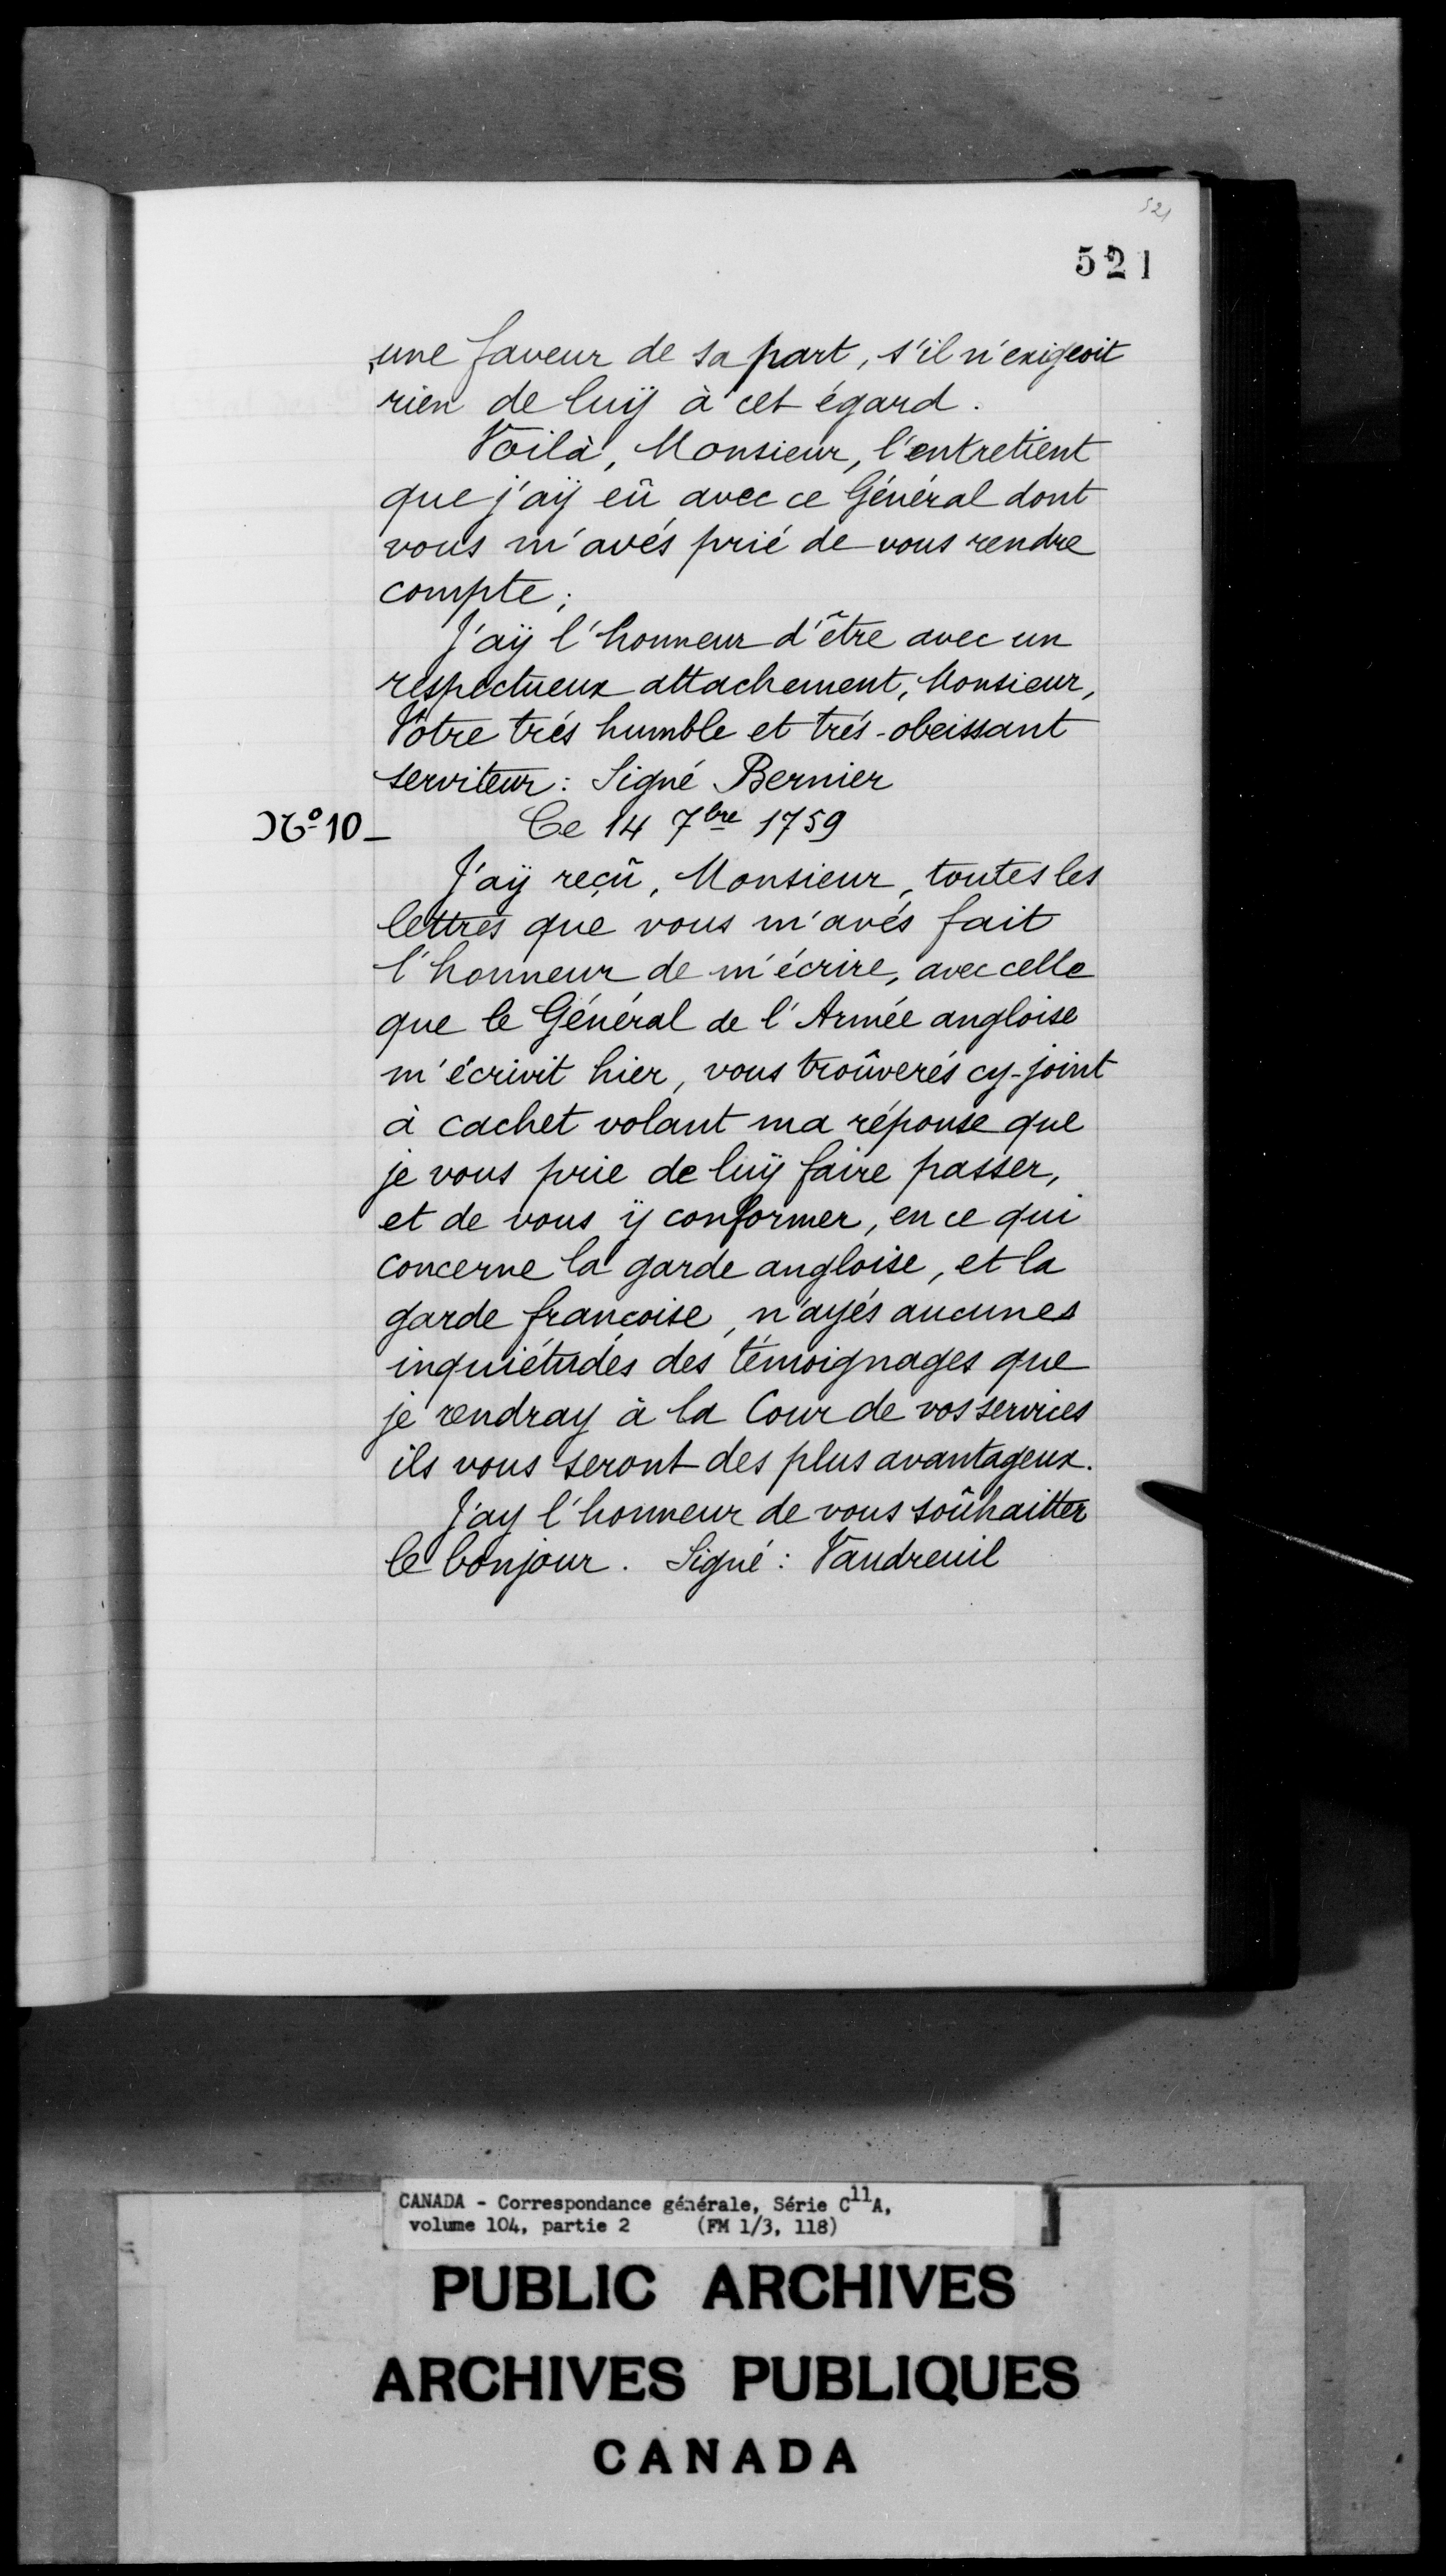 521
521
une faveur de sa part, s'il n'exigeoit
rien de luÿ à cet égard.
Voilà, Monsieur, l'entretient
que j'aÿ eû avec ce Général dont
vous m'avés prié de vous rendre
compte;
J'aÿ l'honneur d'être avec un
respectueux attachement, Monsieur,
Vôtre trés humble et trés-obeissant
serviteur: Signé Bernier
Nº 10_ Ce 14 7bre 1759
J'aÿ reçû, Monsieur, toutes les
lettres que vous m'avés fait
l'honneur de m'écrire, avec celle
que le Général de l'Armée angloise
m'écrivit hier, vous troûverés cy-joint
à cachet volant ma réponse que
je vous prie de luÿ faire passer,
et de vous ÿ conformer, en ce qui
concerne la garde angloise, et la
garde françoise, n'ayés aucunes
inquiétudes des témoignages que
je rendray à la Cour de vos services
ils vous seront des plus avantageux.
J'ay l'honneur de vous soûhaitter
le bonjour. Signé: Vaudreuil
CANADA - Correspondance générale, Série C11A,
volume 104, partie 2 (FM 1/3, 118)
PUBLIC ARCHIVES
ARCHIVES PUBLIQUES
CANADA